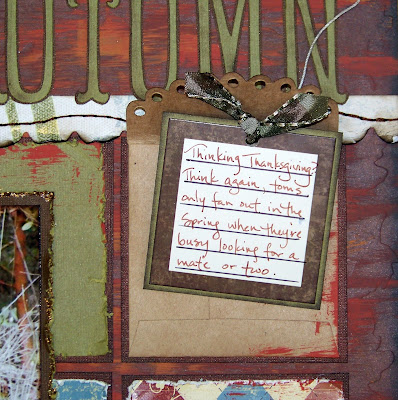 AUTUMN
Thinking Thanksgiving?
Think again, toms
only fan out in the
Spring when they're
busy looking for a
mate or two.